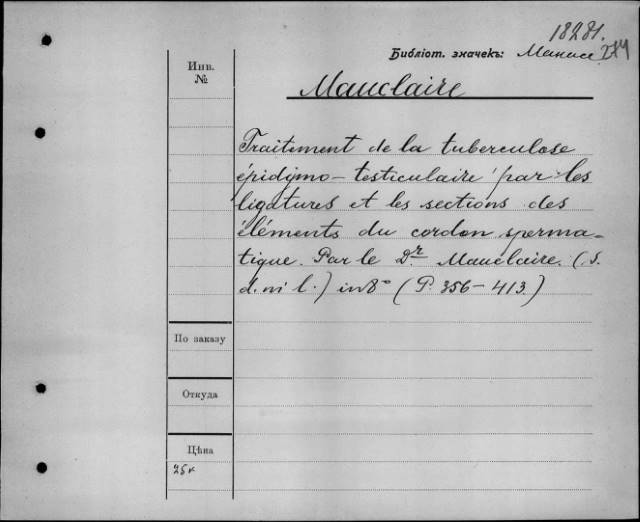 18281.
Библіот. значекъ: 274
Инв.
№
Mauclaire
Traitement de la tuberculose
épidymo-testiculaire par les
ligatures et les sections des
éléments du cordon sperma-
tique. Par le Dr Mauclaire. (s.
d. ni l.) in 8° (P. 356-413)
По заказу
Откуда
Цѣна
25 к